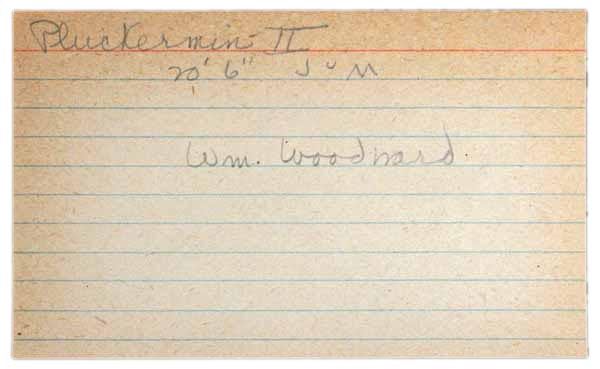 Pluckermin II
20' 6" J U M
Wm. Woodward.